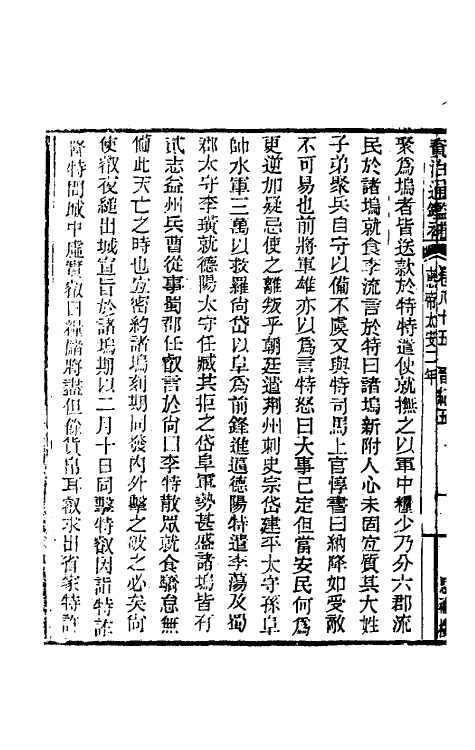 資治通鑑補 卷八十五 晉紀五
惠帝太安二年
聚爲塢者皆送款於特特遣使就撫之以軍中糧少乃分六郡流
民於諸塢就食李流言於特曰諸塢新附人心未固宜質其大姓
子弟聚兵自守以備不虞又與特司馬上官惇書曰納降如受敵
不可易也前將軍雄亦以爲言特怒曰大事已定但當安民何爲
更逆加疑忌使之離叛乎朝廷遣荆州刺史宗岱建平太守孫阜
帥水軍三萬以救羅尚岱以阜爲前鋒進逼德陽特遣李蕩及蜀
郡太守李璜就德陽太守任臧共拒之岱阜軍勢甚盛諸塢皆有
貳志益州兵曹從事蜀郡任叡言於尚曰李特散眾就食驕怠無
備此天亡之時也宜密約諸塢刻期同發內外擊之破之必矣尚
使叡夜縋出城宣旨於諸塢期以二月十日同擊特叡因詣特詐
降特問城中虛實叡曰糧儲將盡但餘貨帛耳叡求出省家特許